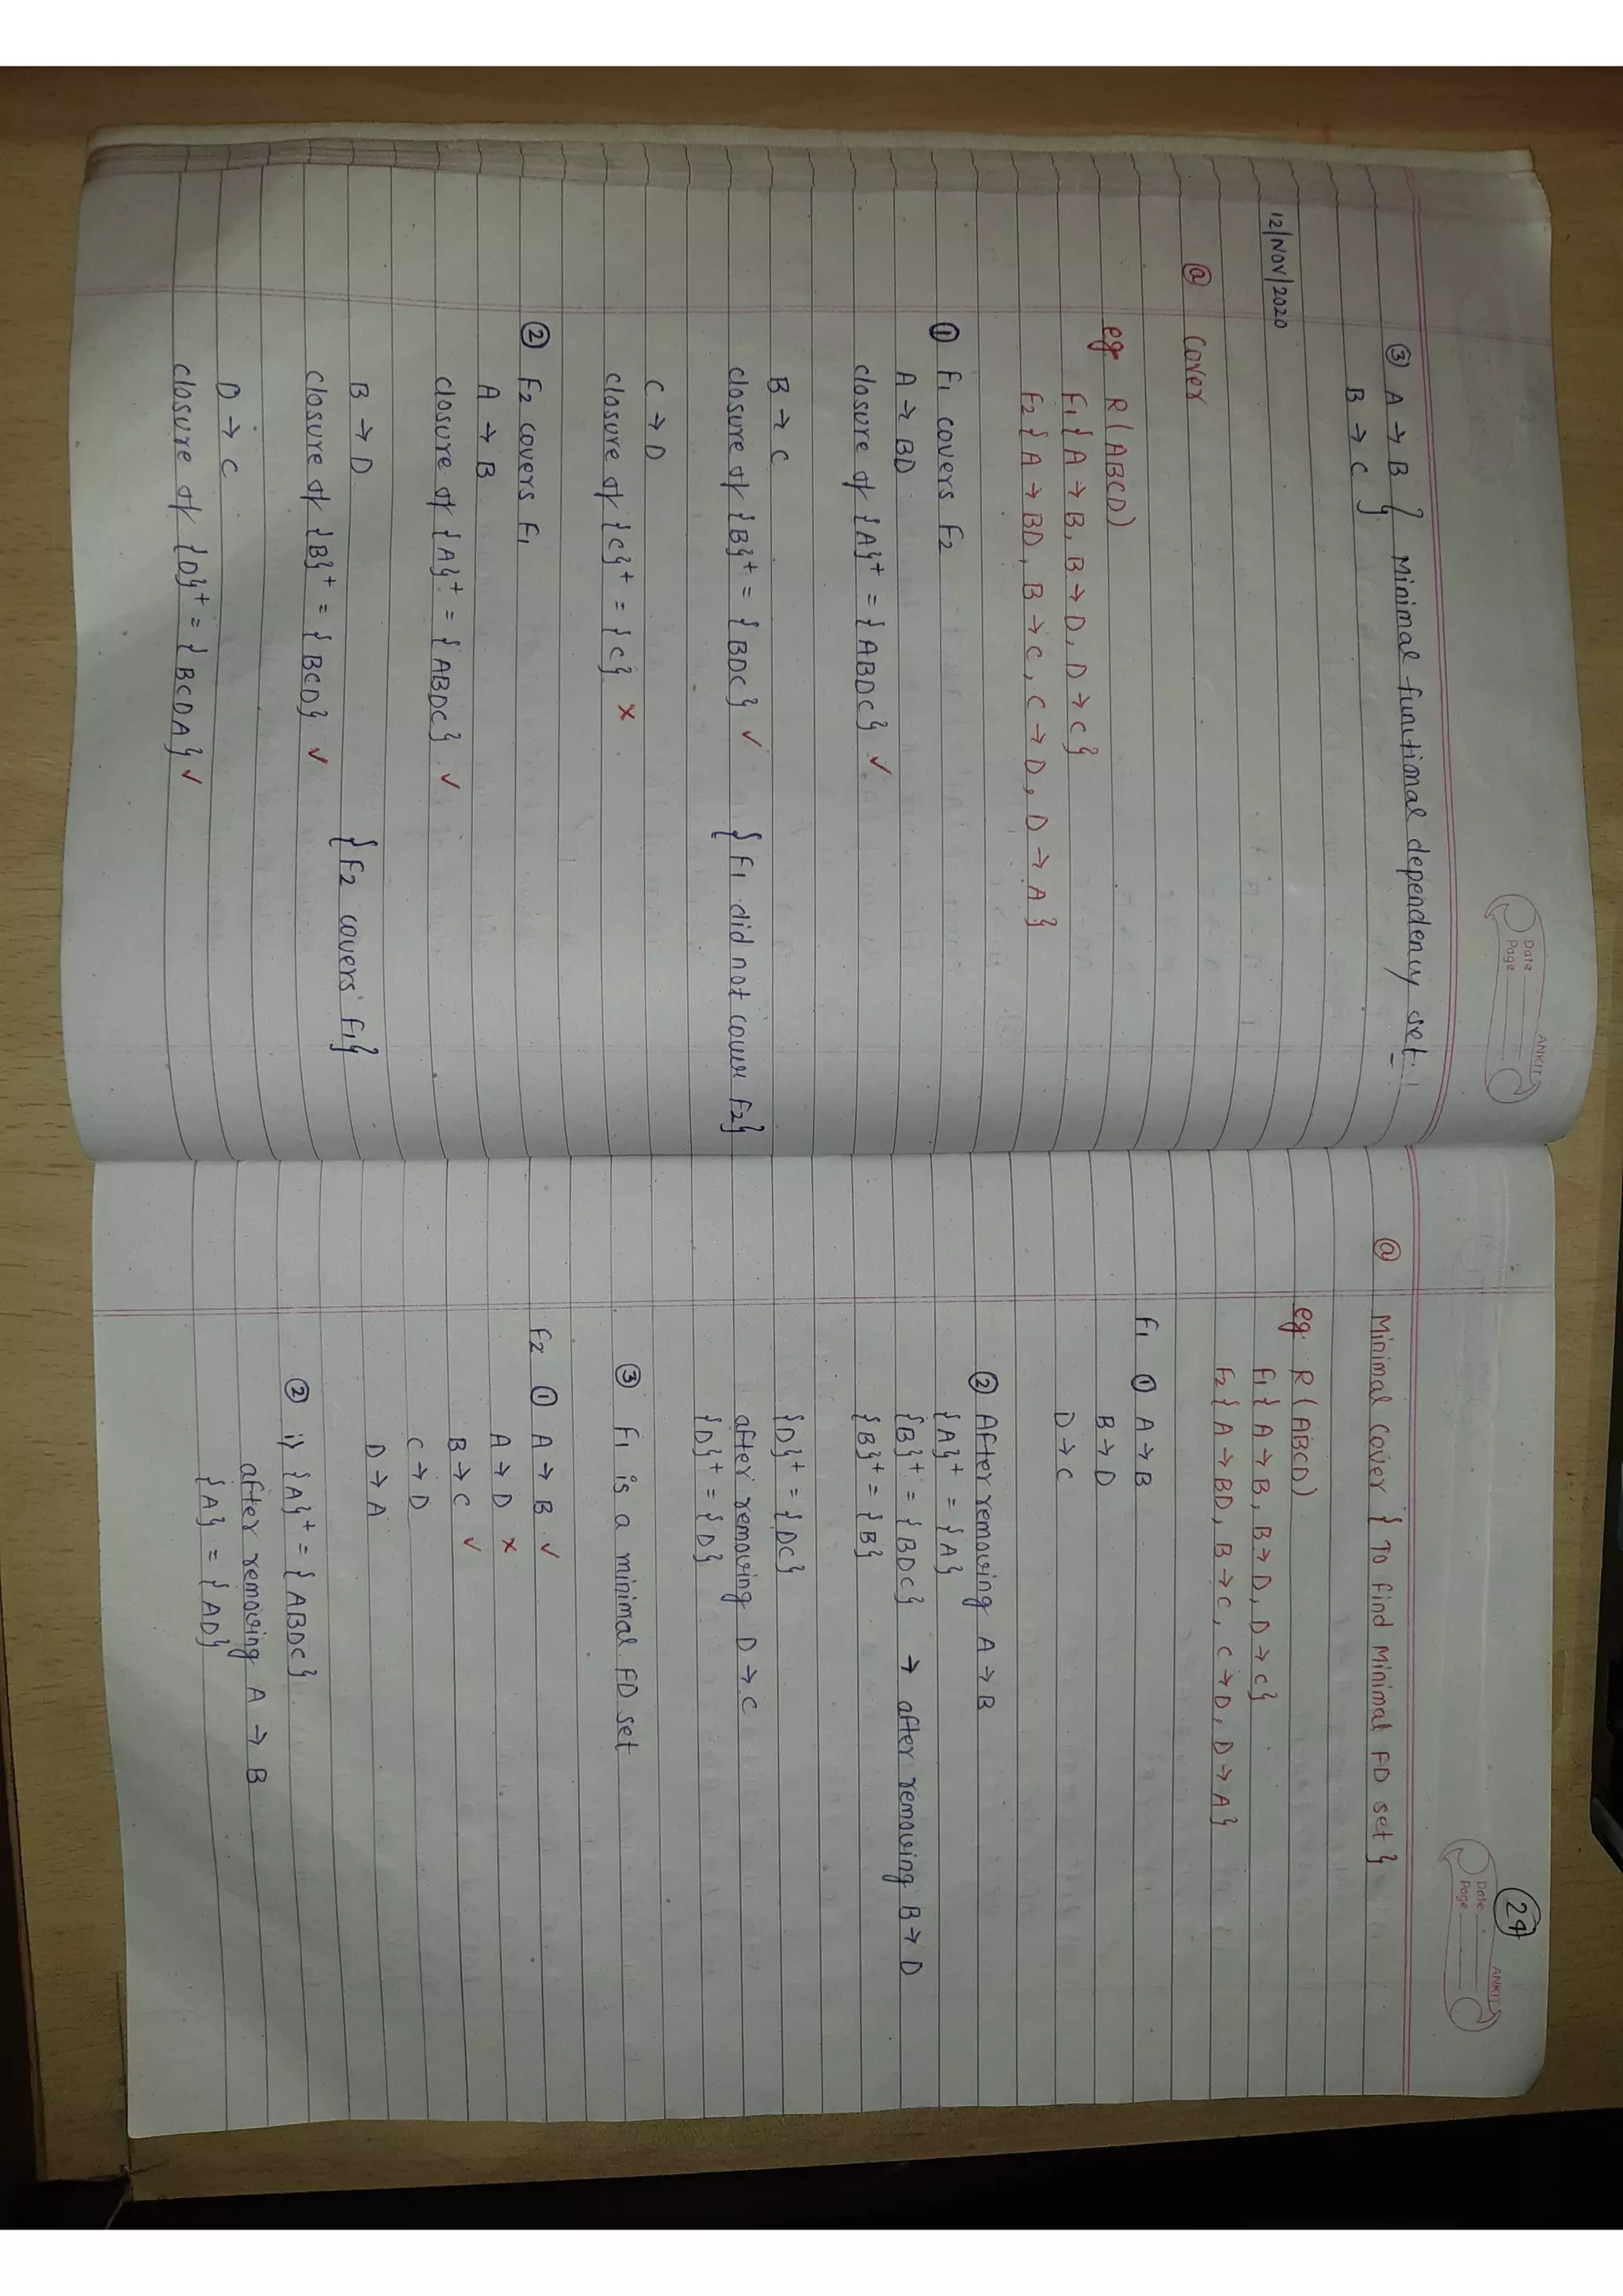 Date
Page
ANKIT
③ A → B } Minimal functional dependency set.
B → C }
12/NOV/2020
@ Cover
eg R (ABCD)
F1 { A → B, B → D, D → C}
F2 { A → BD, B → C, C → D, D → A}
① F1 covers F2
A → BD
closure of {A}+ = {ABDC} ✓
B → C
closure of {B}+ = {BDC} ✓ {F1 did not cover F2}
C → D
closure of {C}+ = {C} ×
② F2 covers F1
A → B
closure of {A}+ = {ABDC} ✓
B → D
closure of {B}+ = {BCD} ✓ {F2 covers F1}
D → C
closure of {D}+ = {BCDA} ✓
24
Date
Page
ANKIT
@ Minimal Cover { To find Minimal FD set }
eg. R (ABCD)
F1 { A → B, B → D, D → C}
F2 { A → BD, B → C, C → D, D → A}
F1 ① A → B
B → D
D → C
② After removing A → B
{A}+ = {A}
{B}+ = {BDC} → after removing B → D
{B}+ = {B}
{D}+ = {DC}
after removing D → C
{D}+ = {D}
③ F1 is a minimal FD set
F2 ① A → B ✓
A → D ×
B → C ✓
C → D
D → A
② i) {A}+ = {ABDC}
after removing A → B
{A} = {AD}